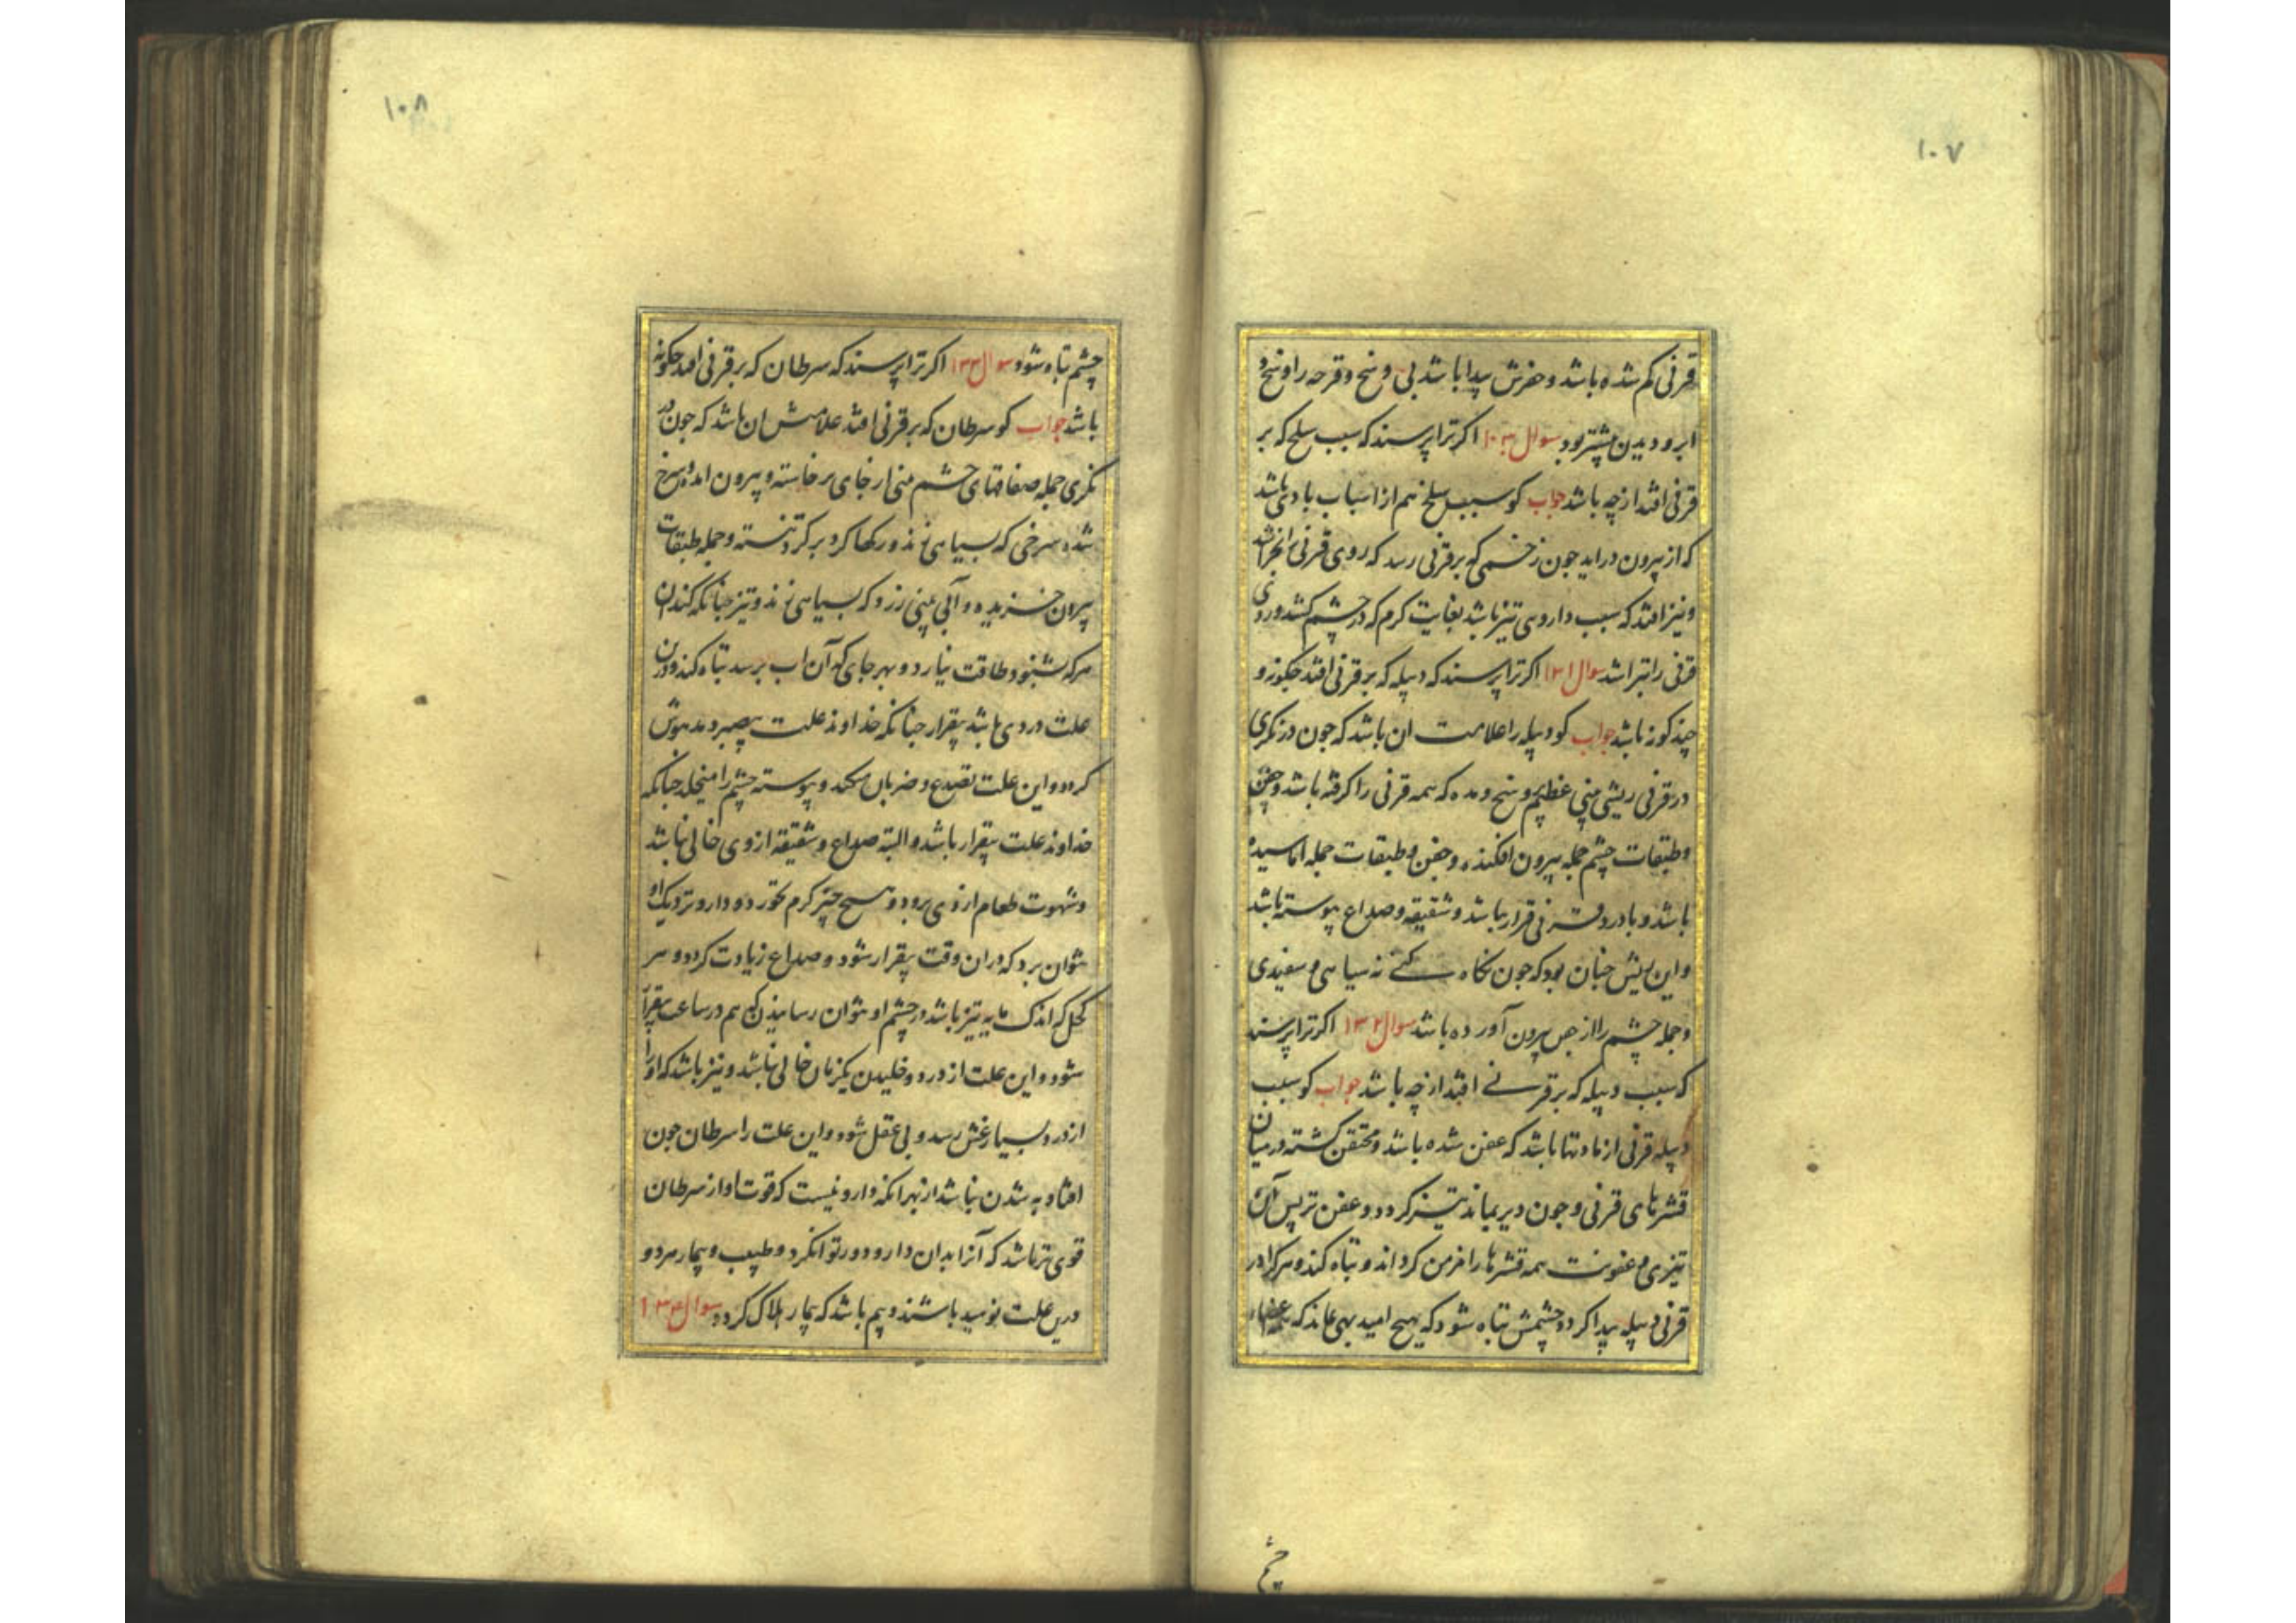 ۱۰۷
قرنی کم شده باشد و حفرش پیدا باشد بی وسخ و قرحه را وسخ و
ابرو دیدن پیشتر بود سوال ۱۳۰ اکر ترا پرسند که سبب سلخ که بر
قرنی افتد از چه باشد جواب کو سبب سلخ هم از اسباب بادی باشد
که از بیرون دراید جون زخمی که بر قرنی رسد که روی قرنی را بخراشد
و نیز افتد که سبب داروی تیز باشد بغایت کرم که در چشم کشد و روی
قرنی را بتراشد سوال ۱۳۱ اکر ترا پرسند که دبیله که بر قرنی افتد جکونه و
چند کونه باشد جواب کو دبیله را علامت ان باشد که جون در نکری
در قرنی ریشی بینی عظیم وسخ و مده که همه قرنی را کرفته باشد و جفن
و طبقات چشم جمله بیرون افکنده و جفن و طبقات جمله اماسیده
باشد و با درد بی قرار باشد و شقیقه و صداع پیوسته باشد
و این ریش جنان بود که جون نکاه کنی نه سیاهی و سفیدی
و جمله چشم را از بیرون آورده باشد سوال ۱۳۲ اکر ترا پرسند
که سبب دبیله که بر قرنی افتد از چه باشد جواب کو سبب
دبیله قرنی از مادتها باشد که عفن شده باشد و محتقن کشته در میان
قشرهای قرنی و جون دیر بماند تیز کردد و عفن تر پس آن
تیزی و عفونت همه قشرها را مزمن کرداند و تباه کند و هرکرا در
قرنی دبیله پیدا کردد چشمش تباه شود که هیچ امید بهی نماند که همه اعضاء
چشم
۱۰۸
چشم تباه شود سوال ۱۳۳ اکر ترا پرسند که سرطان که بر قرنی افتد جکونه
باشد جواب کو سرطان که بر قرنی افتد علامتش ان باشد که جون در
نکری جمله صفاقهای چشم بینی از جای برخاسته و بیرون امده و سرخ
شده سرخی که بسیاهی زند و رکها کرد بر کرد تنسته و جمله طبقات
بیرون خزیده و آبی بینی زرد که بسیاهی زند و تیز جنانکه کند ان
هرکه بشنود طاقت نیارد و بهر جای که آن اب برسد تباه کند و درین
علت دردی باشد بیقرار جنانکه خداوند علت بیصبر و مدهوش
کردد و این علت تصدع و ضربان میکند و پیوسته چشم را میخلد جنانکه
خداوند علت بیقرار باشد و البته صداع و شقیقه از وی خالی نباشد
و شهوت طعام از وی برود و هیج چیز کرم نخورد و دارو نزدیک او
نتوان برد که در ان وقت بیقرار شود و صداع زیادت کردد و هر
کحل که اندک مایه تیز باشد در چشم او نتوان رسانیدن که هم در ساعت بیقرار
شود و این علت از درد و خلیدن یکزمان خالی نباشد و نیز باشد که او را
از درد بسیار غش رسد و بی عقل شود و این علت را سرطان جون
افتاد به شدن نباشد از بهر انکه دارو نیست که قوت او از سرطان
قوی تر باشد که آنرا بدان دارو دور توان کرد و طبیب و بیمار هر دو
درین علت نومید باشند و بیم باشد که بیمار هلاک کردد سوال ۱۳۴